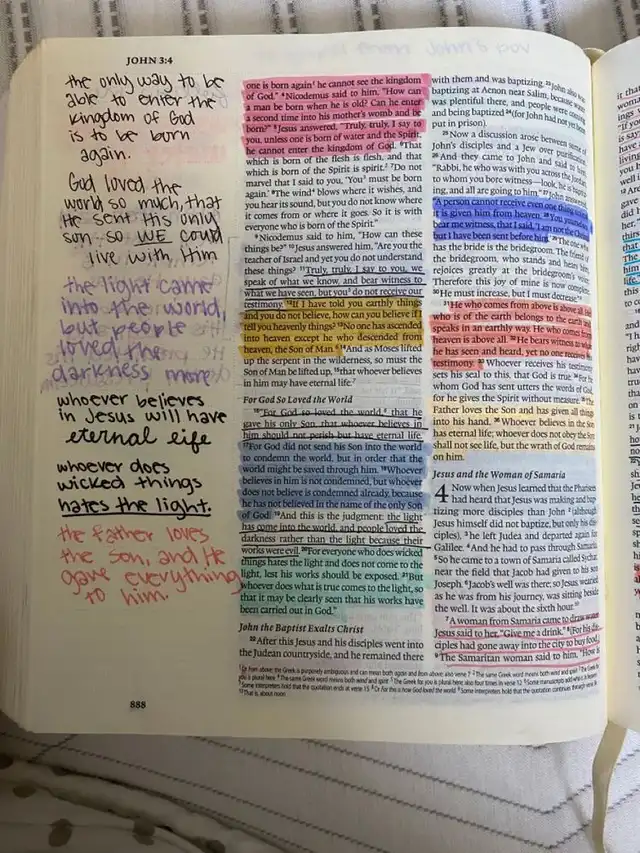 JOHN 3:4
the only way to be
able to enter the
kingdom of God
is to be born
again.
God loved the
world so much, that
He sent His only
son so WE could
live with Him
the light came
into the world,
but people
loved the
darkness more
whoever believes
in Jesus will have
eternal life
whoever does
wicked things
hates the light.
the father loves
the son, and He
gave everything
to him.
888
one is born again¹ he cannot see the kingdom
of God." ⁴Nicodemus said to him, "How can
a man be born when he is old? Can he enter
a second time into his mother's womb and be
born?" ⁵Jesus answered, "Truly, truly, I say to
you, unless one is born of water and the Spirit,
he cannot enter the kingdom of God. ⁶That
which is born of the flesh is flesh, and that
which is born of the Spirit is spirit.² ⁷Do not
marvel that I said to you, 'You³ must be born
again.' ⁸The wind⁴ blows where it wishes, and
you hear its sound, but you do not know where
it comes from or where it goes. So it is with
everyone who is born of the Spirit."
⁹Nicodemus said to him, "How can these
things be?" ¹⁰Jesus answered him, "Are you the
teacher of Israel and yet you do not understand
these things? ¹¹Truly, truly, I say to you, we
speak of what we know, and bear witness to
what we have seen, but you⁵ do not receive our
testimony. ¹²If I have told you earthly things
and you do not believe, how can you believe if I
tell you heavenly things? ¹³No one has ascended
into heaven except he who descended from
heaven, the Son of Man.⁶ ¹⁴And as Moses lifted
up the serpent in the wilderness, so must the
Son of Man be lifted up, ¹⁵that whoever believes
in him may have eternal life.⁷
For God So Loved the World
¹⁶"For God so loved the world,⁸ that he
gave his only Son, that whoever believes in
him should not perish but have eternal life.
¹⁷For God did not send his Son into the world
to condemn the world, but in order that the
world might be saved through him. ¹⁸Whoever
believes in him is not condemned, but whoever
does not believe is condemned already, because
he has not believed in the name of the only Son
of God. ¹⁹And this is the judgment: the light
has come into the world, and people loved the
darkness rather than the light because their
works were evil. ²⁰For everyone who does wicked
things hates the light and does not come to the
light, lest his works should be exposed. ²¹But
whoever does what is true comes to the light, so
that it may be clearly seen that his works have
been carried out in God."
John the Baptist Exalts Christ
²²After this Jesus and his disciples went into
the Judean countryside, and he remained there
with them and was baptizing. ²³John also was
baptizing at Aenon near Salim, because water
was plentiful there, and people were coming
and being baptized ²⁴(for John had not yet been
put in prison).
²⁵Now a discussion arose between some of
John's disciples and a Jew over purification.
²⁶And they came to John and said to him,
"Rabbi, he who was with you across the Jordan,
to whom you bore witness—look, he is baptiz-
ing, and all are going to him." ²⁷John answered,
"A person cannot receive even one thing unless
it is given him from heaven. ²⁸You yourselves
bear me witness, that I said, 'I am not the Christ,
but I have been sent before him.' ²⁹The one who
has the bride is the bridegroom. The friend of
the bridegroom, who stands and hears him,
rejoices greatly at the bridegroom's voice.
Therefore this joy of mine is now complete.
³⁰He must increase, but I must decrease."
³¹He who comes from above is above all. He
who is of the earth belongs to the earth and
speaks in an earthly way. He who comes from
heaven is above all. ³²He bears witness to what
he has seen and heard, yet no one receives his
testimony. ³³Whoever receives his testimony
sets his seal to this, that God is true. ³⁴For he
whom God has sent utters the words of God,
for he gives the Spirit without measure. ³⁵The
Father loves the Son and has given all things
into his hand. ³⁶Whoever believes in the Son
has eternal life; whoever does not obey the Son
shall not see life, but the wrath of God remains
on him.
Jesus and the Woman of Samaria
4 Now when Jesus learned that the Pharisees
had heard that Jesus was making and bap-
tizing more disciples than John ²(although
Jesus himself did not baptize, but only his dis-
ciples), ³he left Judea and departed again for
Galilee. ⁴And he had to pass through Samaria.
⁵So he came to a town of Samaria called Sychar,
near the field that Jacob had given to his son
Joseph. ⁶Jacob's well was there; so Jesus, wearied
as he was from his journey, was sitting beside
the well. It was about the sixth hour.
⁷A woman from Samaria came to draw water.
Jesus said to her, "Give me a drink." ⁸(For his dis-
ciples had gone away into the city to buy food.)
⁹The Samaritan woman said to him, "How is